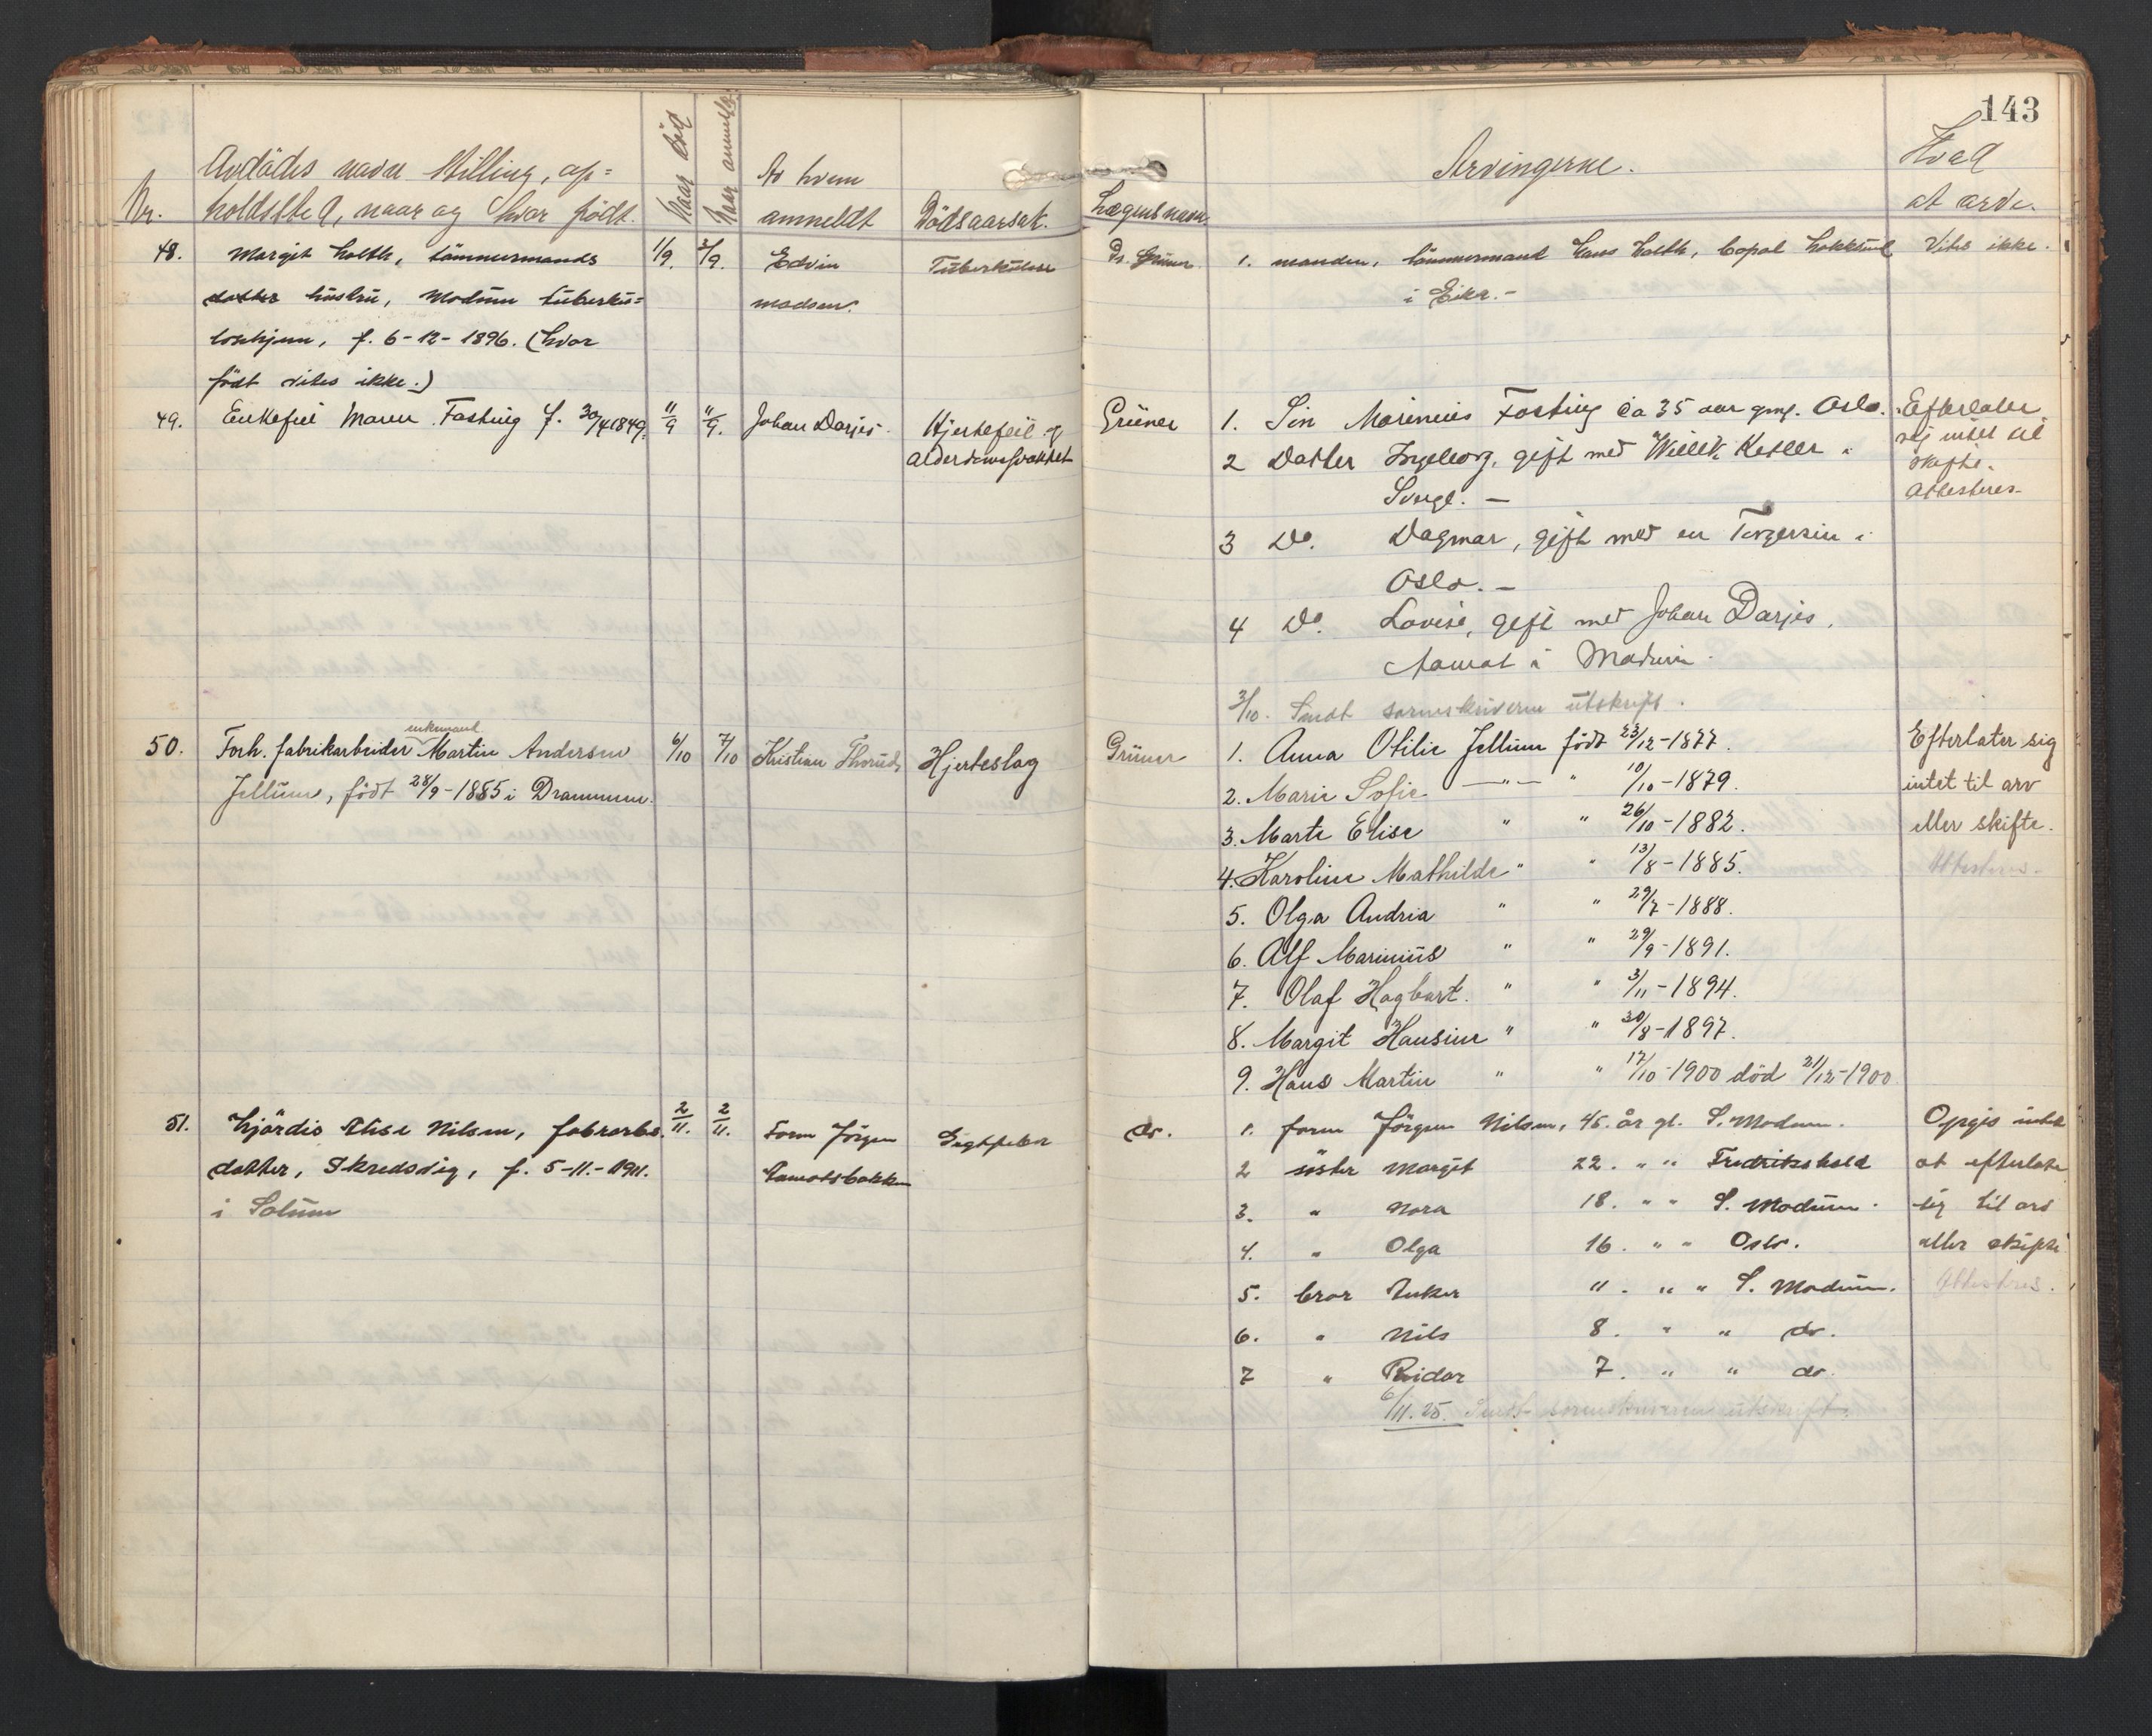 143
Nr.
Avdødes navn stilling, op=
holdssted, naar og hvor født.
Naar død
Naar anmeldt
Av hvem
anmeldt
Dødsaarsak.
Lægens navn.
Arvingerne.
Hvad
at arve.
48.
Margit Holth, tömmermands
datter hustru, Modum tuberku=
loschjem, f. 6-12-1896. (hvor
født vites ikke.)
1/9.
2/9.
Edvin
Madsen.
Tuberkulose
Dr. Grüner.
1. manden, tömmermand Hans Holth, Hokksund
i Eiker.-
Vites ikke.
49.
Enkefru Maren Fasting f. 30/4 1849.
11/9
11/9.
Johan Darjes.
Hjertefeil og
alderdomssvakhet
Grüner
1. Sön Marinius Fasting ca 35 aar gml. Oslo.
2 Datter Ingeborg, gift med Willh. Kesler i
3 Do. Dagmar, gift med en Torgersen i
Oslo.-
4 Do. Lovise, gift med Johan Darjes,
Aamot i Modum.
3/10. Sendt sorenskriveren utskrift.
Efterlater
sig intet til
skifte.
Attesteres.
50.
enkemand
Forh. fabrikarbeider Martin Andersen
Jellum, født 28/9-1855 i Drammen.
6/10
7/10
Kristian Thorud
Hjerteslag
Grüner
1. Anna Otilie Jellum født 23/12-1877.
2. Marie Sofie -"- " 10/10-1879.
3. Marte Elise " " 26/10-1882.
4. Karoline Mathilde " " 13/8-1885.
5. Olga Andria " " 29/7-1888.
6. Alf Marinius " " 29/9-1891.
7. Olaf Hagbart. " " 3/11-1894.
8. Margit Hansine " " 30/8-1897.
9. Hans Martin " " 17/10-1900 död 21/12-1900
Efterlater sig
intet til arv
eller skifte.
Attesteres.
51.
Hjördis Elise Nilsen, fabrarb.
datter, Skredsvig, f. 5-11.-1911.
i Solum
2/11.
2/11.
Farm Jörgen
Aamotsbakken
Gigtfeber
do.
1. farm Jörgen Nilsen, 45. år gl. S. Modum.
2 söster Margit 22. " " Fredrikshald
3. " Nora 18. " " S. Modum.
4. " Olga 16. " " Oslo.
5. bror 11. " " S. Modum.
6. " Nils 8. " " do.
7 " Reidar 7. " " do.
6/11.25. Sendt sorenskriveren utskrift.
Opgis intet
at efterlate
sig til arv
eller skifte
Attesteres.